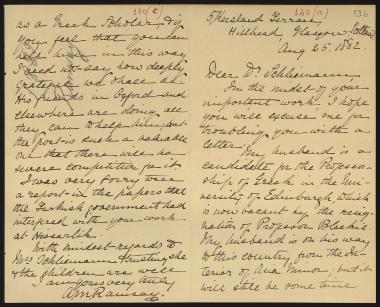 140(a)
536
5 Kersland Terrace
Hillhead Glasgow
Aug 25. 1882.
Dear Dr. Schliemann
In the midst of your
important work I hope
you will excuse me for
troubling you with a
letter
My husband is a
candidate for the Professor-
ship of Greek in the Uni-
versity of Edinburgh, which
is now vacant by the resig-
nation of Professor Blackie.
My husband is on his way
to this country from the in-
terior of Asia Minor; but it
will still be some time
140(c)
as a Greek Scholar. If
you feel that you can
help him in this way
I need not say how deeply
grateful we shall be
His friends in Oxford and
elsewhere are doing all
they can to help him but
the post is such a valuable
one that there will be
severe competition for it
I was very sorry to see
a report in the papers that
the Turkish government had
interfered with your work
at Hissarlik.
With kindest regards to
Mrs Schliemann & trusting she
& the children are well
I am yours very truly
A M Ramsay